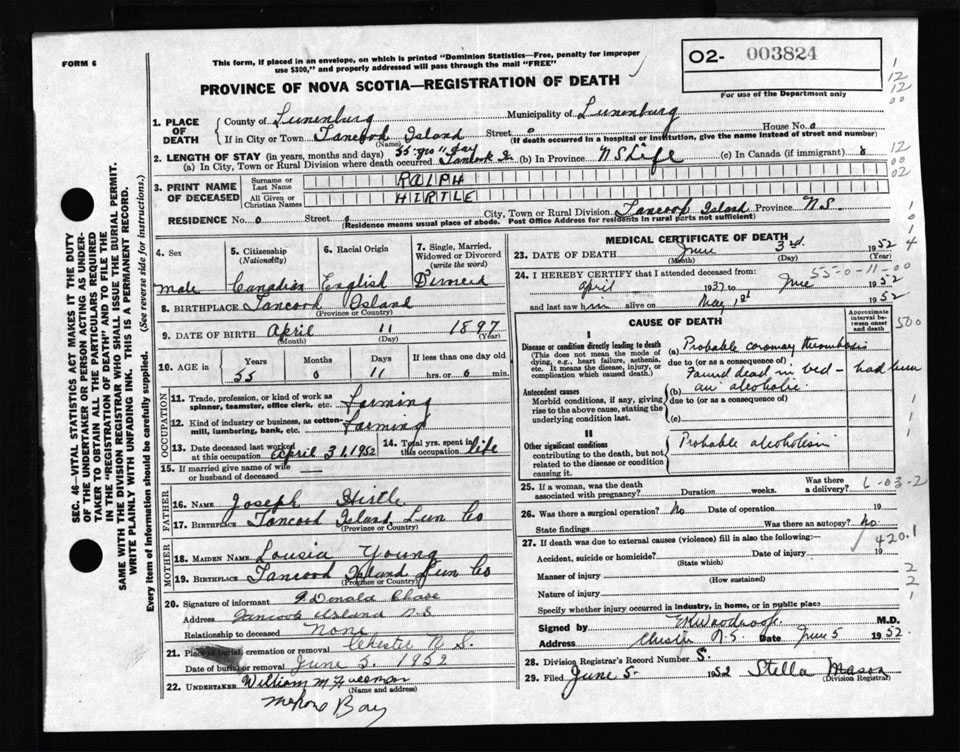 FORM 6
This form, if placed in an envelope, on which is printed "Dominion Statistics—Free, penalty for improper
use $300," and properly addressed will pass through the mail "FREE"
O2- 003824
For use of the Department only
PROVINCE OF NOVA SCOTIA—REGISTRATION OF DEATH
SEC. 46—VITAL STATISTICS ACT MAKES IT THE DUTY
OF THE UNDERTAKER OR PERSON ACTING AS UNDER-
TAKER TO OBTAIN ALL THE PARTICULARS REQUIRED
IN THE "REGISTRATION OF DEATH" AND TO FILE THE
SAME WITH THE DIVISION REGISTRAR WHO SHALL ISSUE THE BURIAL PERMIT.
WRITE PLAINLY WITH UNFADING INK. THIS IS A PERMANENT RECORD.
Every item of information should be carefully supplied. (See reverse side for instructions.)
1. PLACE OF DEATH
County of Lunenburg Municipality of Lunenburg
If in City or Town Tancook Island Street 0 House No. 0
(Name) (If death occurred in a hospital or institution, give the name instead of street and number)
2. LENGTH OF STAY (in years, months and days) 55 yrs 11 day
(a) In City, Town or Rural Division where death occurred Tancook Is. (b) In Province NS Life (c) In Canada (if immigrant) 0
3. PRINT NAME OF DECEASED
Surname or Last Name RALPH
All Given or Christian Names HIRTLE
RESIDENCE No. 0 Street 0 City, Town or Rural Division Tancook Island Province N.S.
(Residence means usual place of abode. Post Office Address for residents in rural parts not sufficient)
4. Sex
male
5. Citizenship (Nationality)
Canadian
6. Racial Origin
English
7. Single, Married, Widowed or Divorced (write the word)
8. BIRTHPLACE Tancook Island
(Province or Country)
9. DATE OF BIRTH April 11 1897
(Month) (Day) (Year)
10. AGE in Years Months Days If less than one day old
55 0 11 hrs. or 0 min.
OCCUPATION
11. Trade, profession, or kind of work as spinner, teamster, office clerk, etc. Farming
12. Kind of industry or business, as cotton-mill, lumbering, bank, etc. Farming
13. Date deceased last worked at this occupation April 31, 1952
14. Total yrs. spent in this occupation life
15. If married give name of wife or husband of deceased —
FATHER
16. NAME Joseph Hirtle
17. BIRTHPLACE Tancook Island Lun Co
(Province or Country)
MOTHER
18. MAIDEN NAME Lousia Young
19. BIRTHPLACE Tancook Island Lun Co
(Province or Country)
20. Signature of informant G Donald Chase
Address Tancook Island N.S.
Relationship to deceased None
21. Place of burial, cremation or removal Chester N.S.
Date of burial or removal June 5. 1952
22. UNDERTAKER William M
(Name and address)
Bay
MEDICAL CERTIFICATE OF DEATH
23. DATE OF DEATH June 3rd 1952
(Month) (Day) (Year)
55-0-11-00
24. I HEREBY CERTIFY that I attended deceased from:
April 1937 to June 1952
and last saw him alive on May 1st 1952
CAUSE OF DEATH
Approximate interval between onset and death
I
Disease or condition directly leading to death
(This does not mean the mode of dying, e.g., heart failure, asthenia, etc. It means the disease, injury, or complication which caused death.)
(a) Probable coronary thrombosis
due to (or as a consequence of)
Found dead in bed – had been
Antecedent causes
Morbid conditions, if any, giving rise to the above cause, stating the underlying condition last.
(b) an alcoholic.
due to (or as a consequence of)
(c)
II
Other significant conditions
contributing to the death, but not related to the disease or condition causing it.
Probable alcoholism
25. If a woman, was the death associated with pregnancy? Duration weeks. Was there a delivery?
6-03-2
26. Was there surgical operation? No Date of operation 19
State findings Was there an autopsy? No
27. If death was due to external causes (violence) fill in also the following:—
420.1
Accident, suicide or homicide? Date of injury 19
(State which)
Manner of injury
(How sustained)
Nature of injury
Specify whether injury occurred in industry, in home, or in public place
Signed by M.D.
Address Chester N.S. Date June 5 1952
28. Division Registrar's Record Number 5.
29. Filed June 5- 1952 Stella Mason
(Division Registrar)